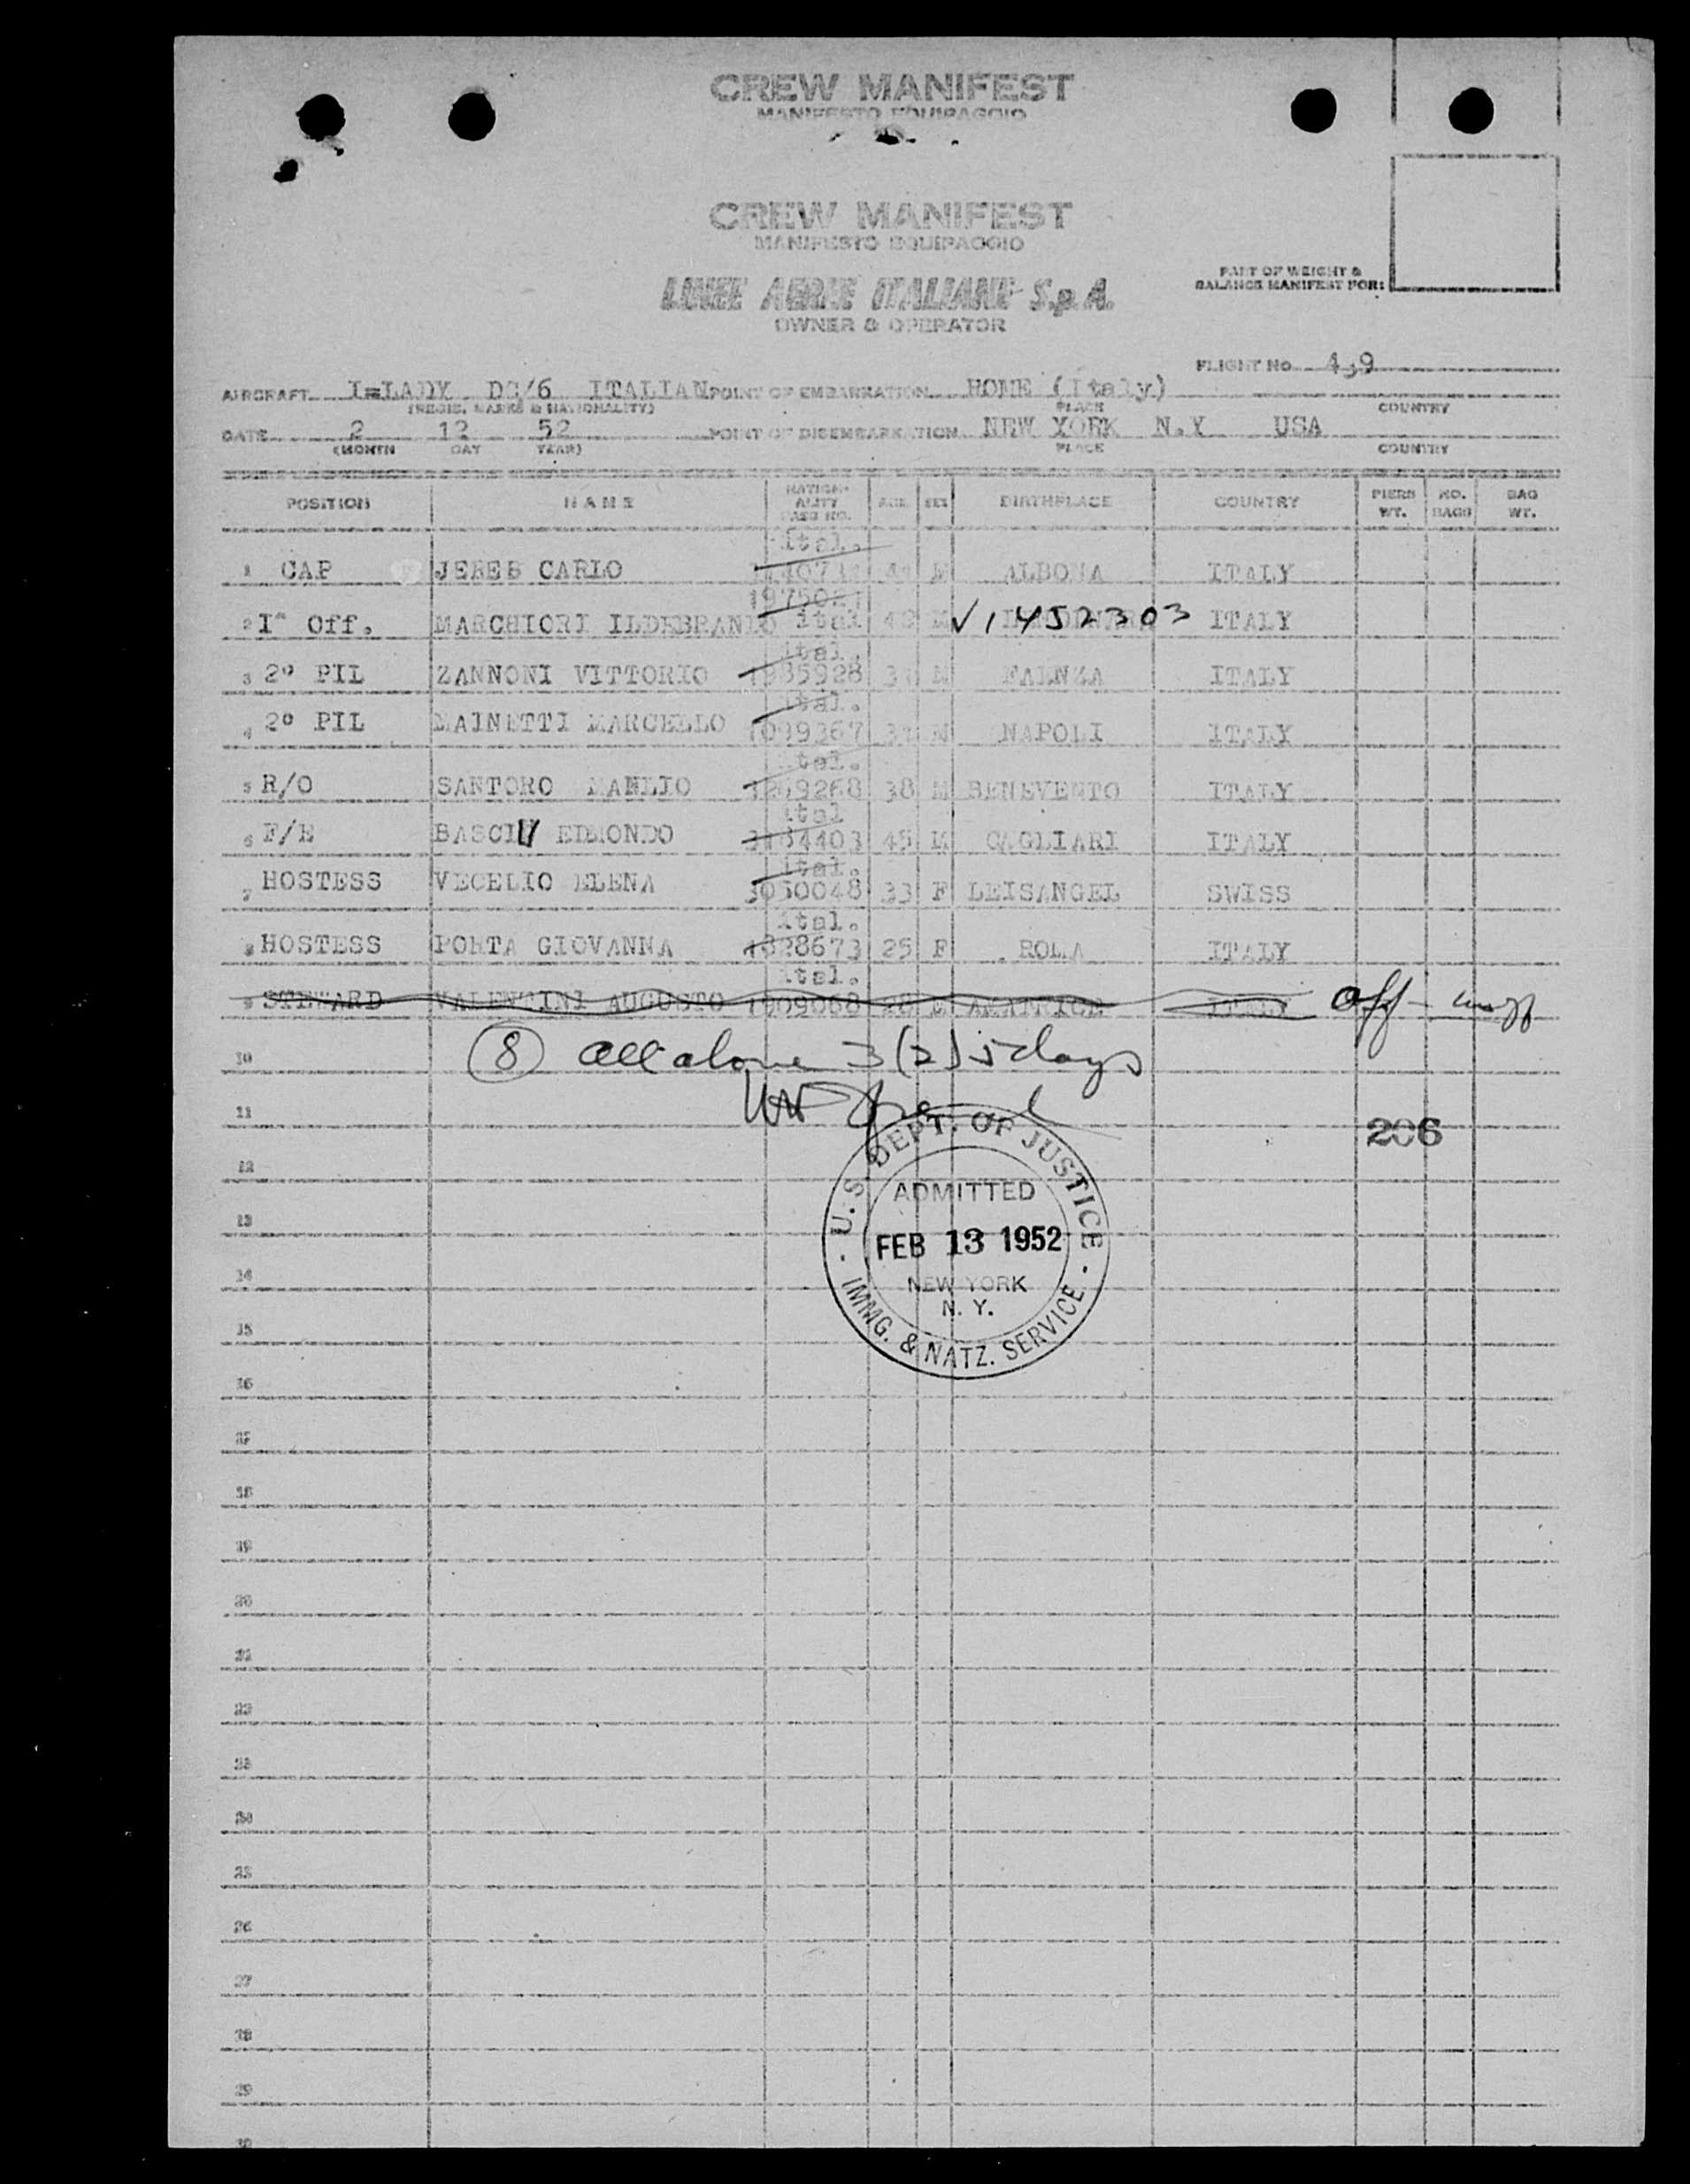 CREW MANIFEST
MANIFESTO EQUIPAGGIO
CREW MANIFEST
MANIFESTO EQUIPAGGIO
LINEE AEREE ITALIANE S.p.A.
OWNER & OPERATOR
PART OF WEIGHT &
BALANCE MANIFEST FOR:
FLIGHT No
AIRCRAFT I=LADY DC/6 ITALIAN POINT OF EMBARKATION ROME (Italy)
(REGIS. MARKS & NATIONALITY) PLACE COUNTRY
DATE 2 12 52 POINT OF DISEMBARKATION NEW YORK N.Y USA
(MONTH DAY YEAR) PLACE COUNTRY
POSITION NAME NATION-ALITY PASS NO. AGE SEX BIRTHPLACE COUNTRY PIERS WT. NO. BAGS BAG WT.
ital.
1 CAP CARLO M ALBONA ITALY
2 I° Off. MARCHIORI ILDEBRANDO ital M √ 1452303 ITALY
ital.
3 2° PIL ZANNONI VITTORIO M FAENZA ITALY
ital.
4 2° PIL MAINETTI MARCELLO M NAPOLI ITALY
ital.
5 R/O SANTORO MANLIO 38 M BENEVENTO ITALY
ital
6 F/E EDMONDO 45 M CAGLIARI ITALY
ital.
7 HOSTESS VECELIO ELENA 3030048 33 F LEISANGEL SWISS
ital.
8 HOSTESS PORTA GIOVANNA 1828673 25 F ROMA ITALY
ital.
9 STEWARD VALENTINI AUGUSTO 1909068 28 M ITALY off
10 8 all above 3(2) 5 days
11
206
12
13
14
15
16
17
18
19
20
21
22
23
24
25
26
27
28
29
30
U.S. DEPT. OF JUSTICE
ADMITTED
FEB 13 1952
NEW YORK
N. Y.
IMMG. & NATZ. SERVICE